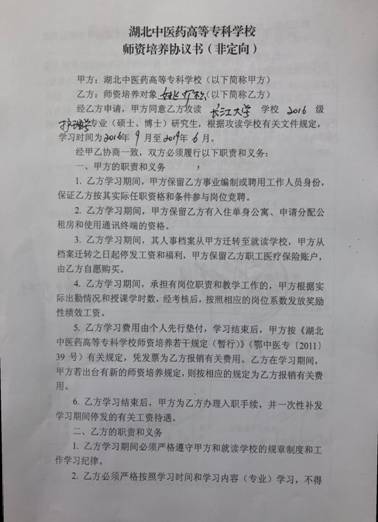 湖北中医药高等专科学校
师资培养协议书（非定向）
甲方：湖北中医药高等专科学校（以下简称甲方）
乙方：师资培养对象（以下简称乙方）
经乙方申请，甲方同意乙方攻读 长江大学 学校 2016 级
护理学专业（硕士、博士）研究生，根据攻读学校有关文件规定，
学习时间为2016年 9 月至2019年 6 月。
经甲乙协商一致，双方必须履行以下职责和义务：
一、甲方的职责和义务
1. 乙方学习期间，甲方保留乙方事业编制或聘用工作人员身份，
保证乙方按其实际任职资格和条件参与岗位竞聘。
2. 乙方学习期间，甲方保留乙方有入住单身公寓、申请分配公
租房和使用通讯终端的资格。
3. 乙方学习期间，其人事档案从甲方迁转至就读学校，甲方从
档案迁转之日起停发工资和福利，甲方保留乙方职工医疗保险账户，
由乙方自愿购买。
4. 乙方学习期间，承担有岗位职责和教学工作的，甲方根据实
际出勤情况和授课学时数，经考核后，按照相应的岗位系数发放奖励
性绩效工资。
5. 乙方学习费用由个人先行垫付，学习结束后，甲方按《湖北
中医药高等专科学校师资培养若干规定（暂行）》（鄂中医专〔2011〕
39 号）有关规定，凭发票为乙方报销有关费用。乙方在学习期间，
甲方若出台有新的师资培养规定，则按相应的规定为乙方报销有关费
用。
6. 乙方学习结束后，甲方为乙方办理入职手续，并一次性补发
学习期间停发的有关工资待遇。
二、乙方的职责和义务
1. 乙方学习期间必须严格遵守甲方和就读学校的规章制度和工
作学习纪律。
2. 乙方必须严格按照学习时间和学习内容（专业）学习，不得